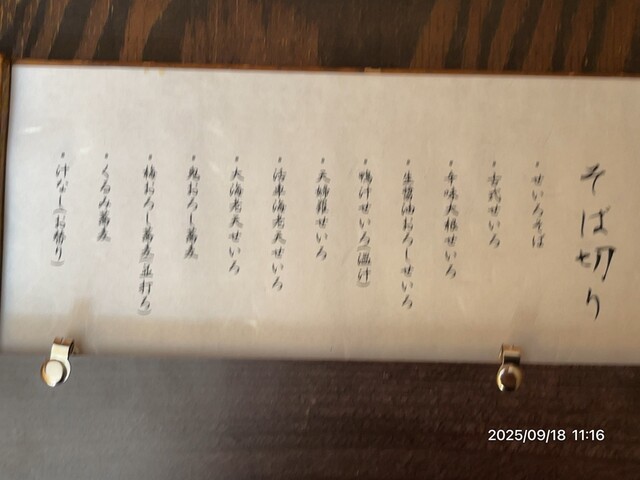 そば切り
・せいろそば
・古式せいろ
・辛味大根せいろ
・生醤油おろしせいろ
・鴨汁せいろ(温汁)
・天婦羅せいろ
・活車海老天せいろ
・大海老天せいろ
・鬼おろし蕎麦
・梅おろし蕎麦(並打ち)
・くるみ蕎麦
・汁なし(お替り)
2025/09/18 11:16